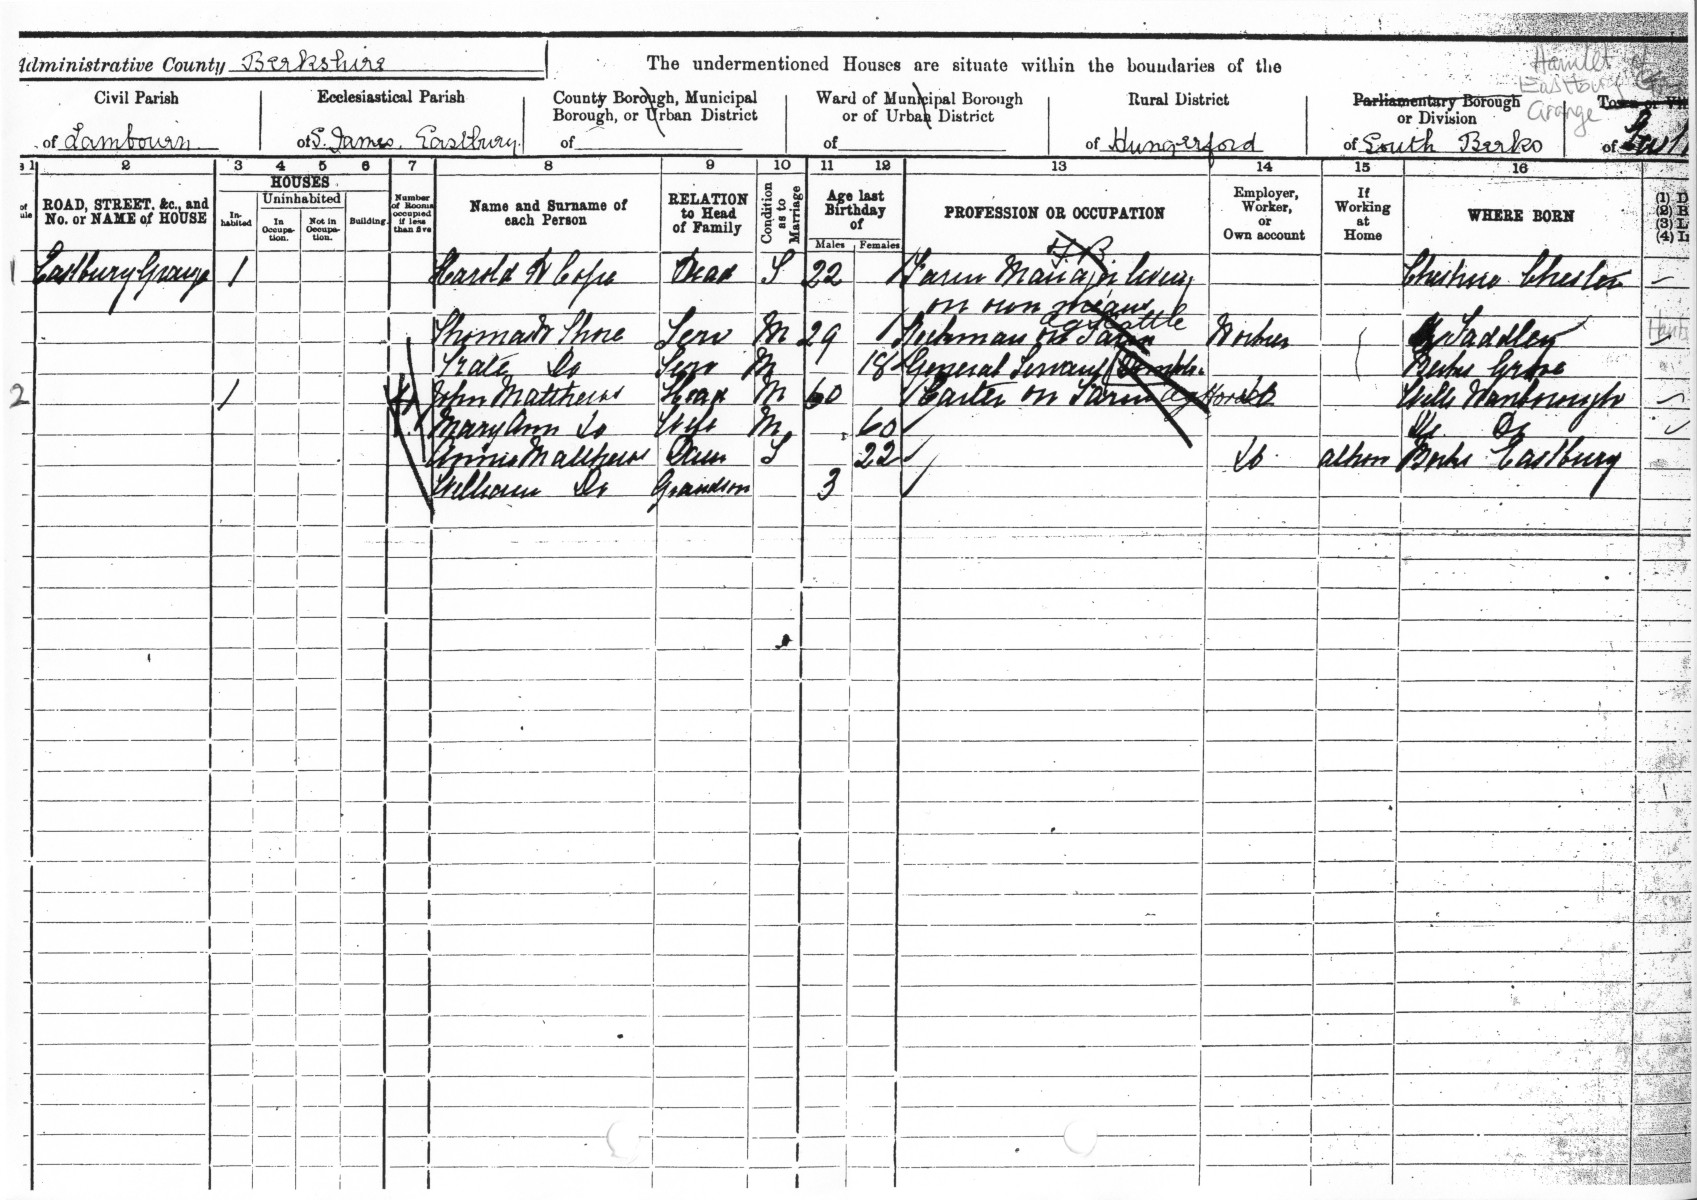 Administrative County Berkshire
The undermentioned Houses are situate within the boundaries of the
Hamlet of
Eastbury
Grange
Civil Parish
of Lambourn
Ecclesiastical Parish
of S. James, Eastbury
County Borough, Municipal
Borough, or Urban District
of
Ward of Municipal Borough
or of Urban District
of
Rural District
of Hungerford
Parliamentary Borough
or Division
of South Berks
Town or
of
1 2 3 4 5 6 7 8 9 10 11 12 13 14 15 16
ROAD, STREET, &c., and
No. or NAME of HOUSE
HOUSES
In-
habited
Uninhabited
In
Occupa-
tion.
Not in
Occupa-
tion.
Building.
Number
of Rooms
occupied
if less
than five
Name and Surname of
each Person
RELATION
to Head
of Family
Condition
as to
Marriage
Age last
Birthday
of
Males Females
PROFESSION OR OCCUPATION
Employer,
Worker,
or
Own account
If
Working
at
Home
WHERE BORN
(1) D
(2) B
(3) L
(4) L
1 Eastbury Grange 1 Harold Cope Head S 22 Farm living Cheshire Chester
on own means
Thomas Shore Serv M 29 on Farm Cattle Worker Tadley Hants
Kate Do Serv M 18 General Servant Berks Grove
2 1 4 John Matthews Head M 60 Carter on Farm Horse Do Wilts Wanborough
Mary Ann Do Wife M 60 Do Do
Annie Matthews Daur S 22 Do at home Berks Eastbury
William Do Grandson 3